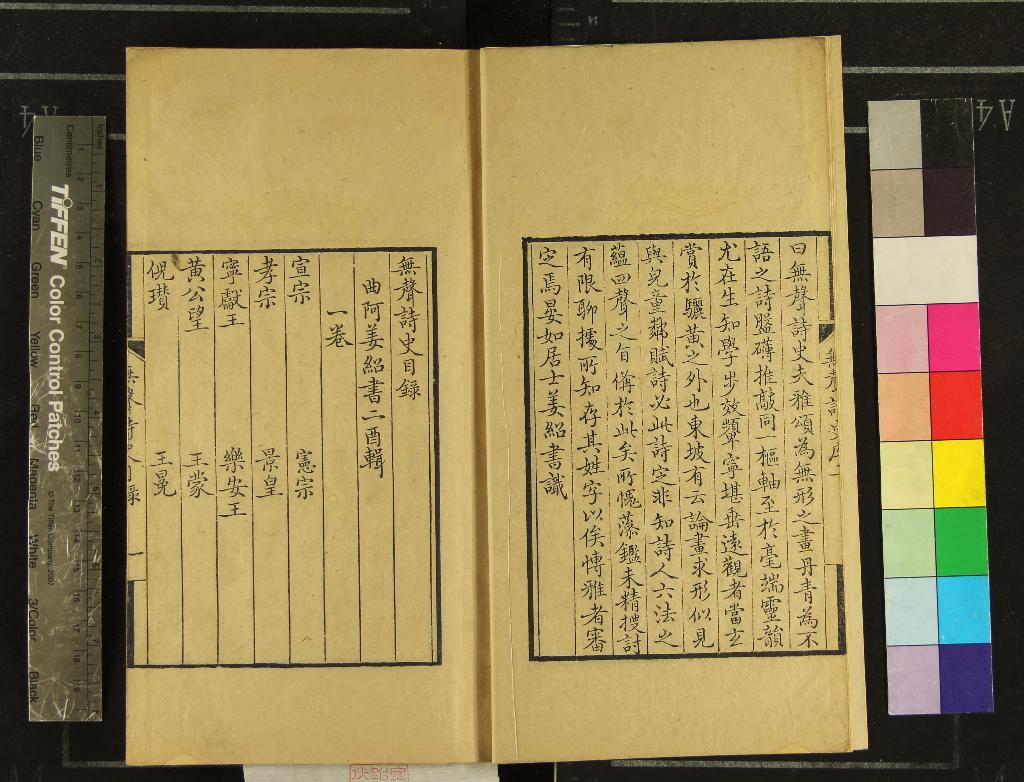 曰無聲詩史夫雅頌為無形之畫丹青為不
語之詩盤礴推敲同一樞軸至於毫端靈韻
尤在生知學步效顰寧堪垂遠觀者當玄
賞於驪黃之外也東坡有云論畫求形似見
與兒童鄰賦詩必此詩定非知詩人六法之
蘊四聲之旨備於此矣所愧藻鑑未精搜討
有限聊據所知存其姓字以俟博雅者審
定焉晏如居士姜紹書識
無聲詩史序
無聲詩史目錄
曲阿姜紹書二酉輯
一卷
宣宗 憲宗
孝宗 景皇
寧獻王 樂安王
黃公望 王蒙
倪瓚 王冕
無聲詩史目錄 一
TIFFEN Color Control Patches
© The Tiffen Company, 2007
Inches
Centimetres
Blue Cyan Green Yellow Red Magenta White 3/Color Black
A4
A4